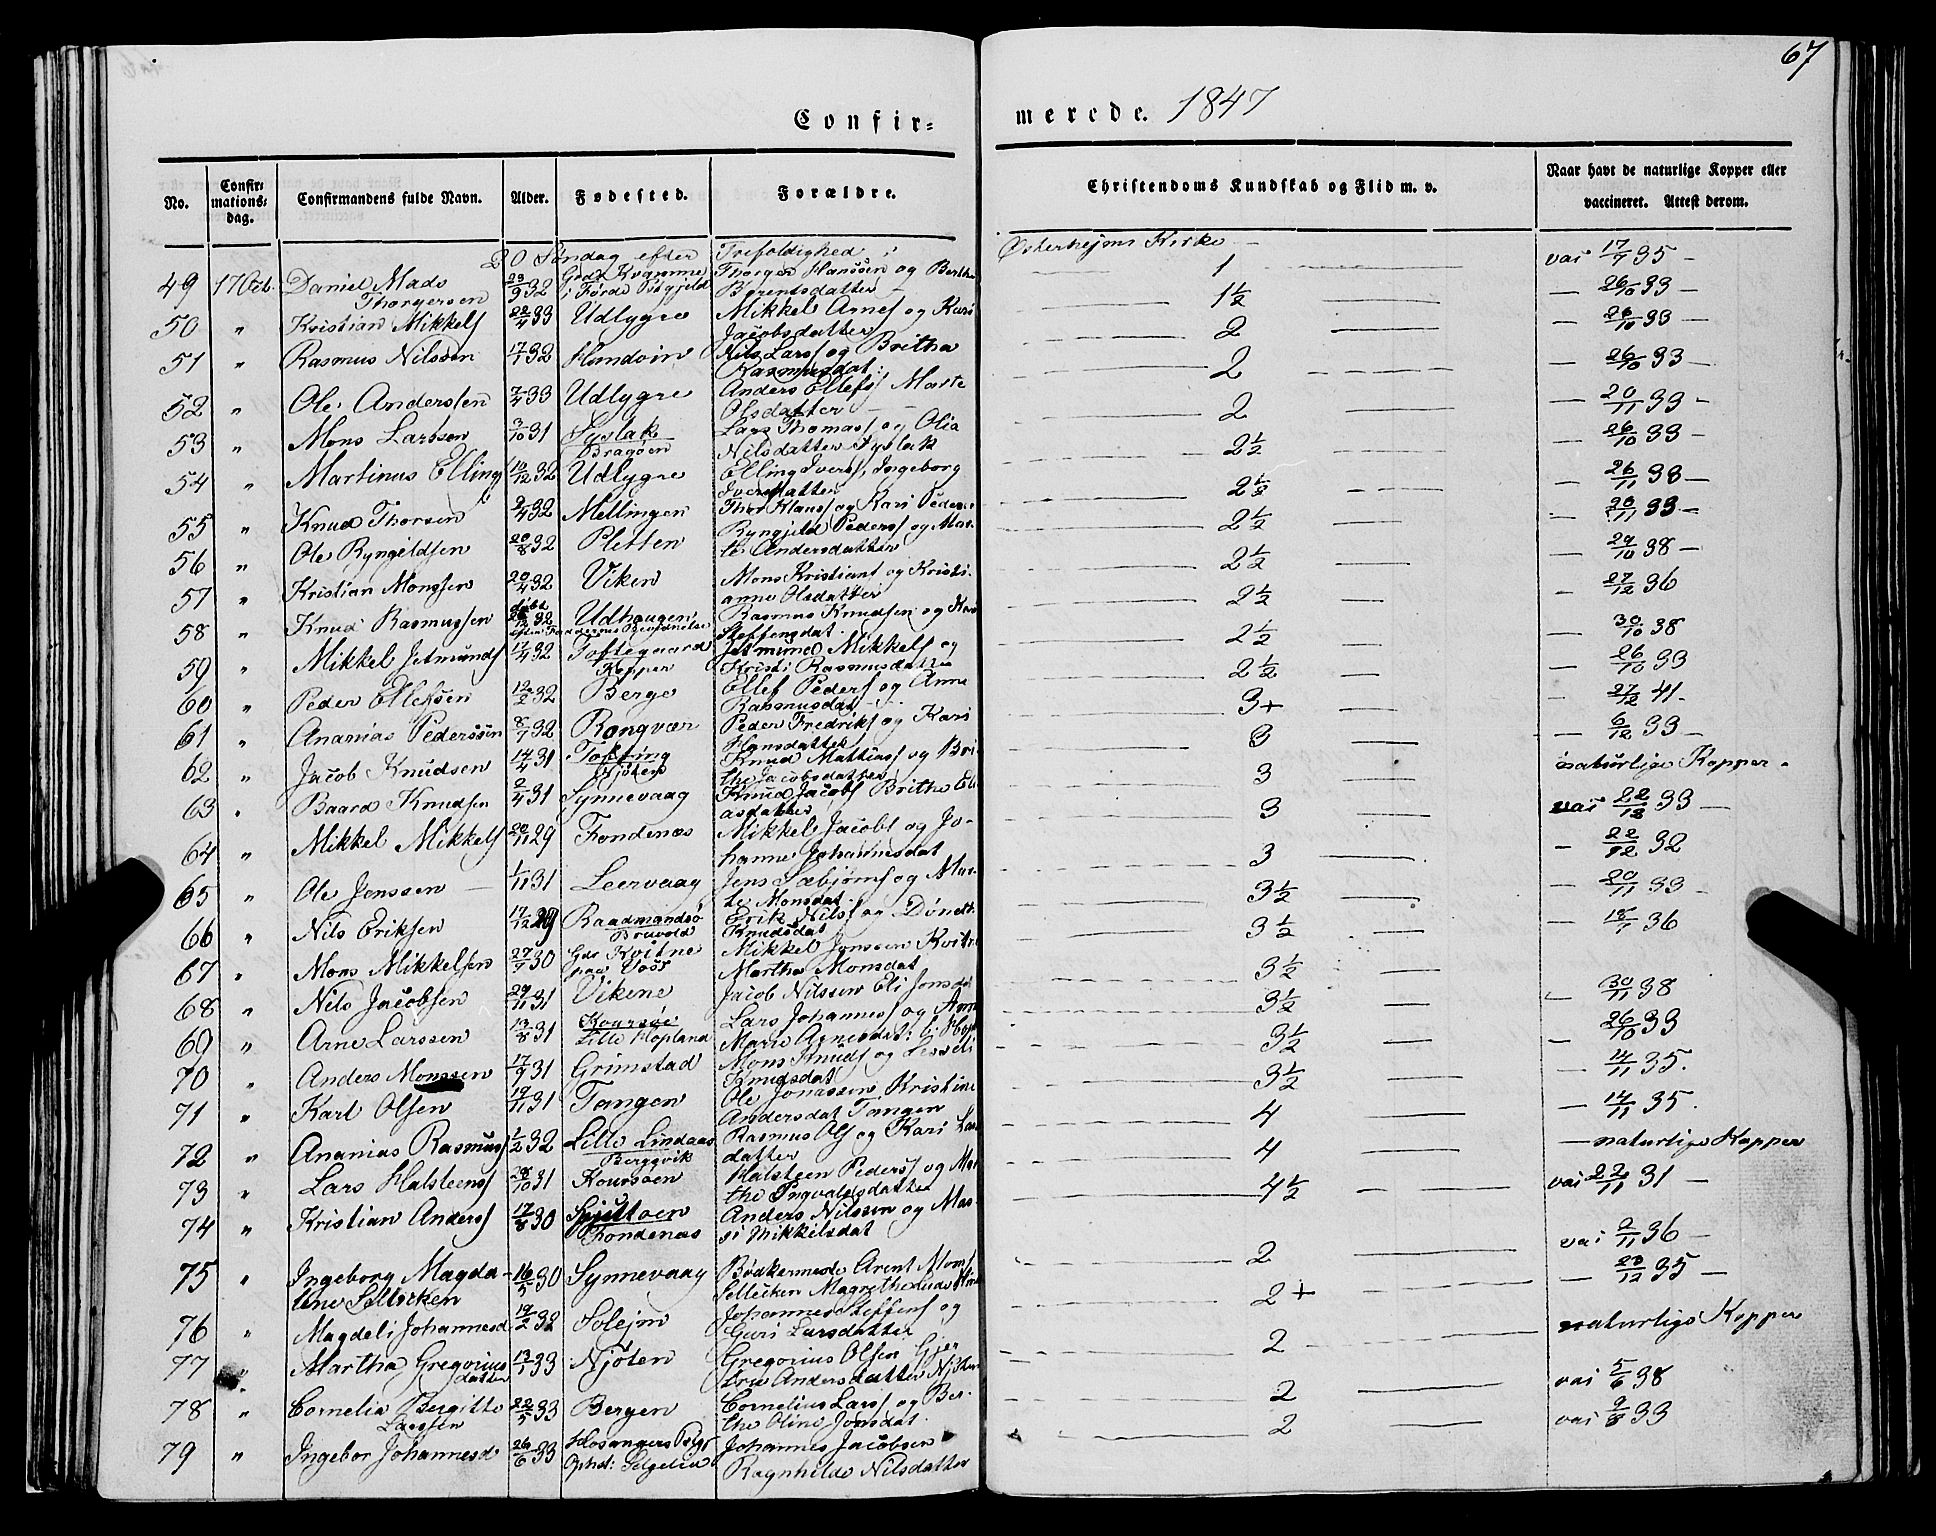 67
Confir=
merede. 1847
No. Confirmationsdag. Confirmandens fulde Navn. Alder. Fødested. Forældre. Christendoms Kundskab og Flid m. v. Naar havt de naturlige Kopper eller vaccineret. Attest derom.
20 Søndag efter Trefoldighed i Østerhejms Kirke
49 17 Oct. Daniel Mads Thorgersen 23/9 32 Kvamme i Førde Thorger Hanssen og Berthe Berentsdatter 1 vac 17/7 35
50 " Kristian Mikkels 22/4 33 Udlygre Mikkel Arnes og Kari Jacobsdatter 1½ 26/10 33
51 " Rasmus Nilssen 17/1 32 Nils Larss og Britha Rasmusdat: 2 26/10 33
52 " Ole Anderssen 7/4 33 Udlygre Anders Ellefs Marte Olsdatter 2 26/10 33
53 " Mons Larssen 3/10 31 Syslak Dragøen Lars Thomass og Olia Nilsdatter Syslak 2 20/11 33
54 " Martinus Elling 10/12 32 Udlygre Elling Ivers, Ingeborg Iversdatter 2½ 26/10 33
55 " Knud Thorsen 9/4 32 Mellingen Thor Klaus og Kari Peders 2½ 26/11 38
56 " Ole Ryngeldsen 20/8 32 Pletten Ryngjeld Peders og Marte Andersdatter 2½ 20/11 33
57 " Kristian Monssen 20/4 32 Viken Mons Kristians og Kristianne Olsdatter 2½ 29/10 38
58 " Knud Rasmussen 32 Udhaugen Rasmus Knudsen og Steffensdat 2½ 27/12 36
59 " Mikkel Jetmunds 17/4 32 Toftegaard Jetmund Mikkels og Kristi Rasmusdatter 2½ 30/10 38
60 " Peder Ellefsen 12/2 32 Berge Ellef Peders og Anne Rasmusdat 2½ 26/10 33
61 " Ananias Pederssen 8/7 32 Rongvær Peder Fredriks og Kari Hansdatter 3+ 27/12 41
62 " Jacob Knudsen 14/4 31 Njøten Knud Mathias og Brithe Jacobsdatter 3 6/12 33
63 " Baard Knudsen 2/4 31 Synnevaag Knud Jacobs Brithe Eliasdatter 3 naturlige Kopper
64 " Mikkel Mikkels 20/11 29 Fondenæs Mikkel Jacobs og Johanne Johannesdat 3 vac 22/12 33
65 " Ole Jenssen 1/11 31 Leervaag Jens Sæbjørns og Marte Monsdat 3 22/12 32
66 " Nils Eriksen 17/12 29 Raadmandsø Bruvold Erik Nils og Knudsdat 3½ 20/11 33
67 " Mons Mikkelsen 27/7 30 Kvitne paa Voss Mikkel Jonssen Kvitne Martha Monsdat 3½ 18/7 36
68 " Nils Jacobsen 29/11 31 Vikene Jacob Nilssen Eli Jonsdat 3½
69 " Arne Larssen 13/8 31 Lille Hopland Lars Johannes og Marie Arnesdat: 3½ 30/11 38
70 " Anders Monssen 17/9 31 Grimstad Mons Knuds og Knudsdat 3½ 26/10 33
71 " Karl Olsen 19/11 31 Tangen Ole Jonassen Kristine Andersdat Tangen 3½ 4/11 35.
72 " Ananias Rasmus 1/2 32 Lille Lindaas Berggvik Rasmus Ols og Kari datter 4 14/11 35.
73 " Lars Halsteens 28/10 31 Koursøen Halsteen Peders og Marthe Ingvaldsdatter 4 naturlige Kopper
74 " Kristian Anders 17/8 30 Fondenæs Anders Nilssen og Marsi Mikkilsdat 4½ vac 22/11 31
75 " Ingeborg Magdalene Selleken 16/5 30 Synnevaag Bødkermester Arent Moms Sellecken Magrethe 2 vac 2/11 36
76 " Magdeli Johannesd 19/2 32 Solejm Johannes Steffens og Guri Larsdatter 2+ 23/12 35
77 " Martha Gregoriusdatter 13/1 33 Njøten Gregorius Olsen Gjertrue Andersdatter Njøten 2 naturlige Kopper
78 " Cornelia Bergitte Larssen 22/5 33 Bergen Cornelius Lars og Berthe Oline Jonsdat 2 vac 5/6 38
79 " Ingebor Johannesd 26/6 33 Hosangers Johannes Jacobsen Ragnhilde Nilsdatter 2 vac 9/8 33